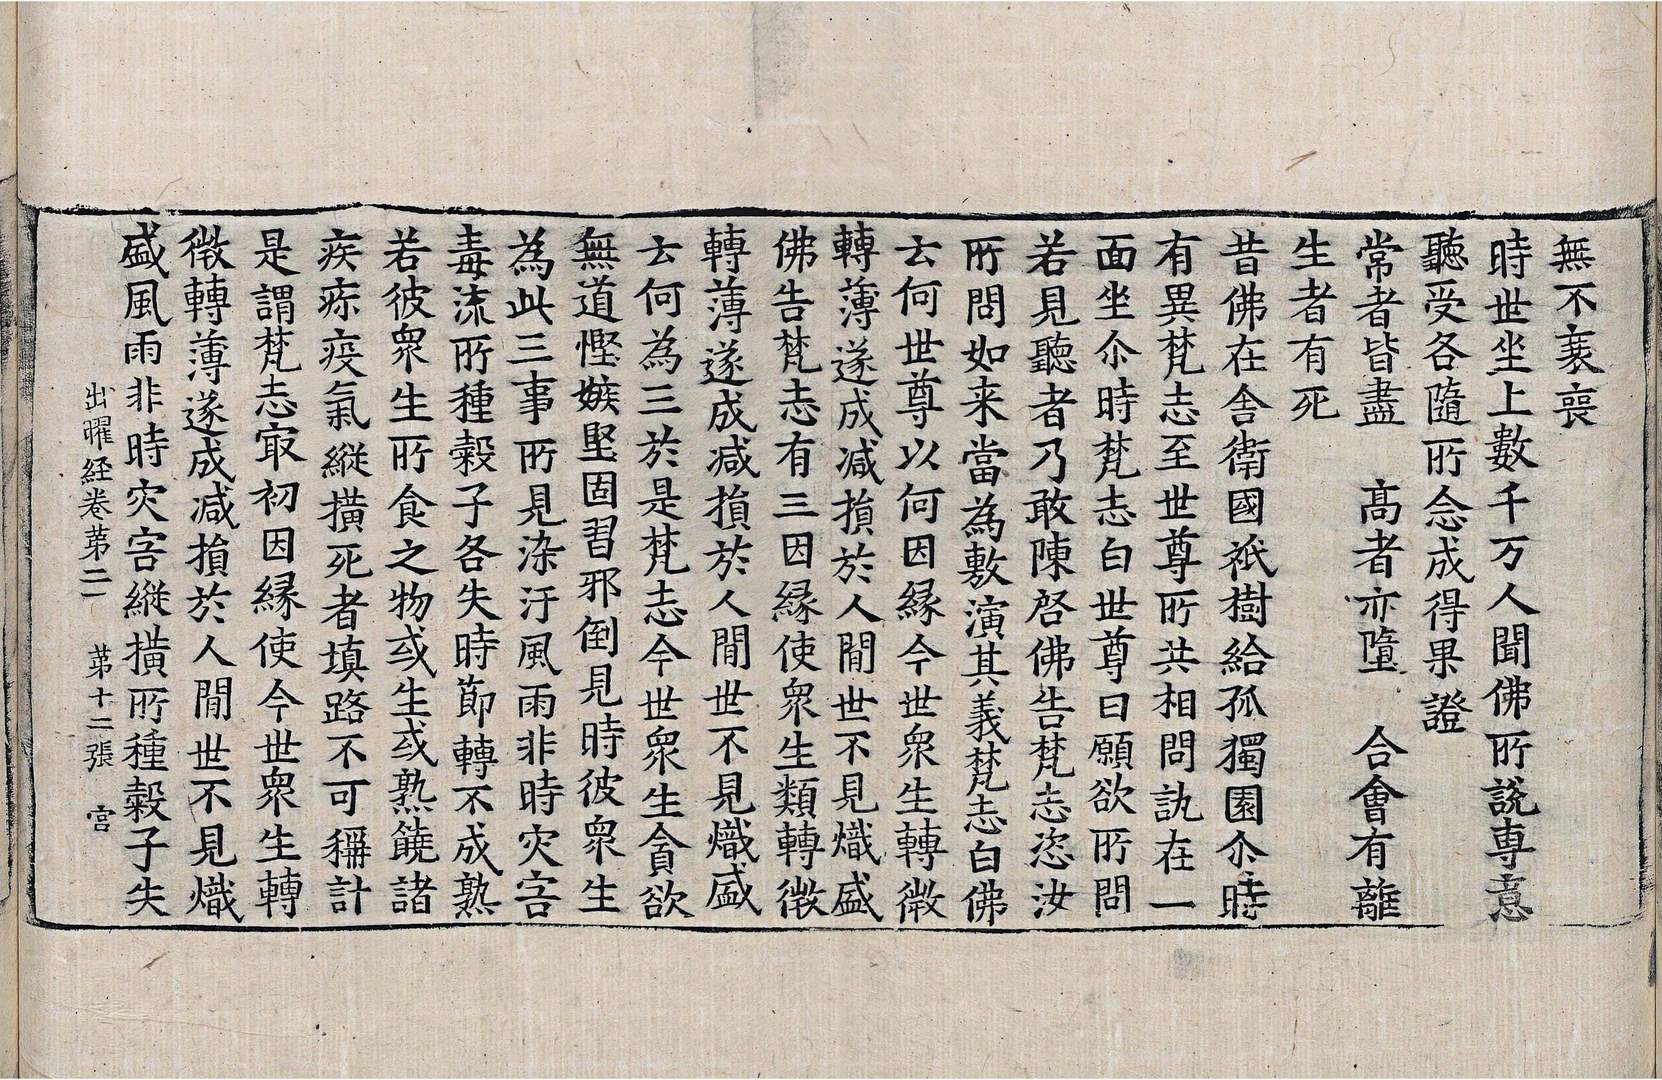 無不衰喪
時世坐上數千万人聞佛所説專意
聽受各隨所念成得果證
常者皆盡　高者亦墮　合會有離
生者有死
昔佛在舍衛國祇樹給孤獨園尒時
有異梵志至世尊所共相問訊在一
面坐尒時梵志白世尊曰願欲所問
若見聽者乃敢陳啓佛告梵志恣汝
所問如来當為敷演其義梵志白佛
云何世尊以何因縁今世衆生轉微
轉薄遂成減損於人間世不見熾盛
佛告梵志有三因縁使衆生類轉微
轉薄遂成減損於人間世不見熾盛
云何為三於是梵志今世衆生貪欲
無道慳嫉堅固習邪倒見時彼衆生
為此三事所見染汙風雨非時灾害
毒流所種穀子各失時節轉不成熟
若彼衆生所食之物或生或熟饒諸
疾疢疫氣縱橫死者填路不可稱計
是謂梵志冣初因縁使今世衆生轉
微轉薄遂成減損於人間世不見熾
盛風雨非時灾害縱橫所種穀子失
出曜経卷苐二　苐十二張　宫